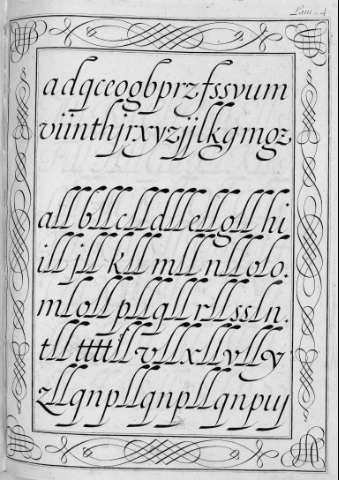 Lam. 4
adqceogbprzfssvum
viinthjrxyzjjlkqmgz
allbllclldllellgllhi
illjllkllmllnllolo.
mlollpllqllrllssln.
tllttttllvllxllylly
zllqnpllqnpllqnpuj